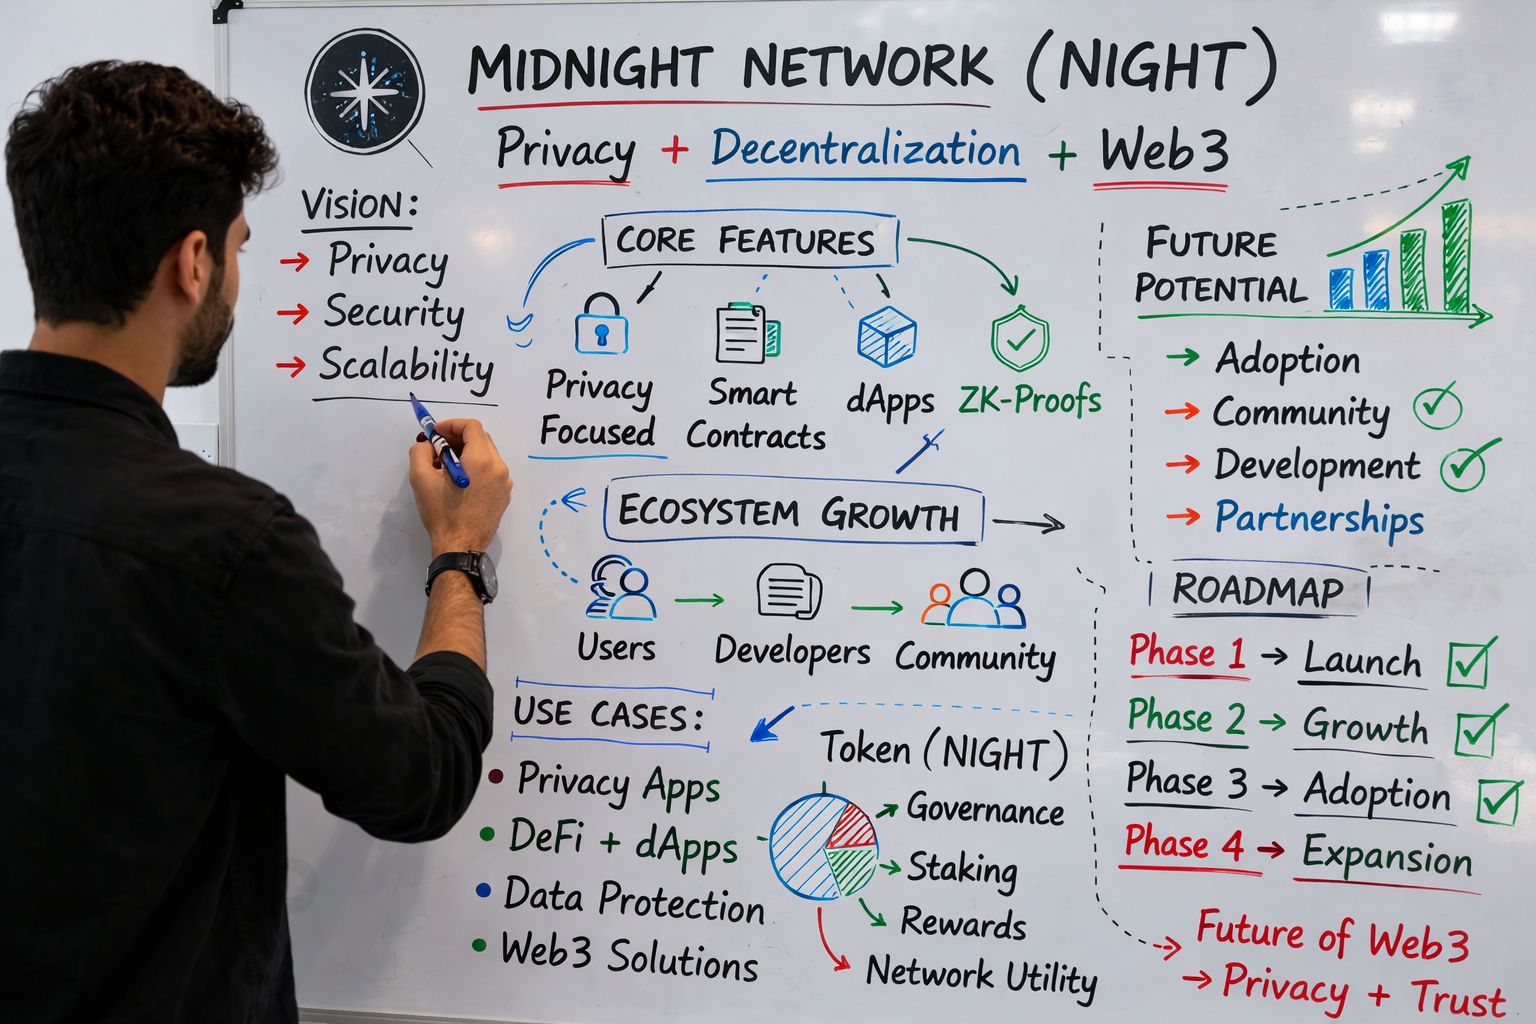 MIDNIGHT NETWORK (NIGHT)
Privacy + Decentralization + Web3
VISION:
→ Privacy
→ Security
→ Scalability
CORE FEATURES
Privacy Focused
Smart Contracts
dApps
ZK-Proofs
ECOSYSTEM GROWTH
Users → Developers → Community
USE CASES:
• Privacy Apps
• DeFi + dApps
• Data Protection
• Web3 Solutions
Token (NIGHT)
→ Governance
→ Staking
→ Rewards
→ Network Utility
FUTURE
POTENTIAL
→ Adoption
→ Community
→ Development
→ Partnerships
ROADMAP
Phase 1 → Launch
Phase 2 → Growth
Phase 3 → Adoption
Phase 4 → Expansion
Future of Web3
→ Privacy + Trust